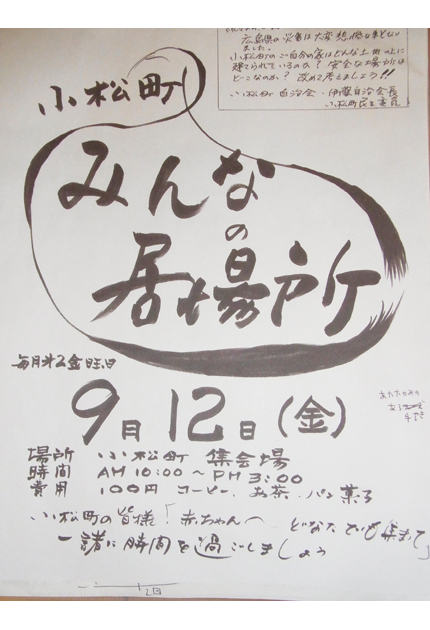 広島県の災害は大変悲惨な事となり
ました。
小松町のご自分の家はどんな土地の上に
建てられているのか? 安全な場所は
どこなのか? 改めて考えましょう!!
小松町 自治会 伊藤自治会長
小松町民生委員
小松町
みんな
の
居場所
毎月第2金曜日
9月12日(金)
場所 小松町 集会場
時間 AM 10:00 ~ PM 3:00
費用 100円 コーヒー、お茶、パン菓子
小松町の皆様!「赤ちゃん~ どなたでも集まって」
一緒に時間を過ごしましょう